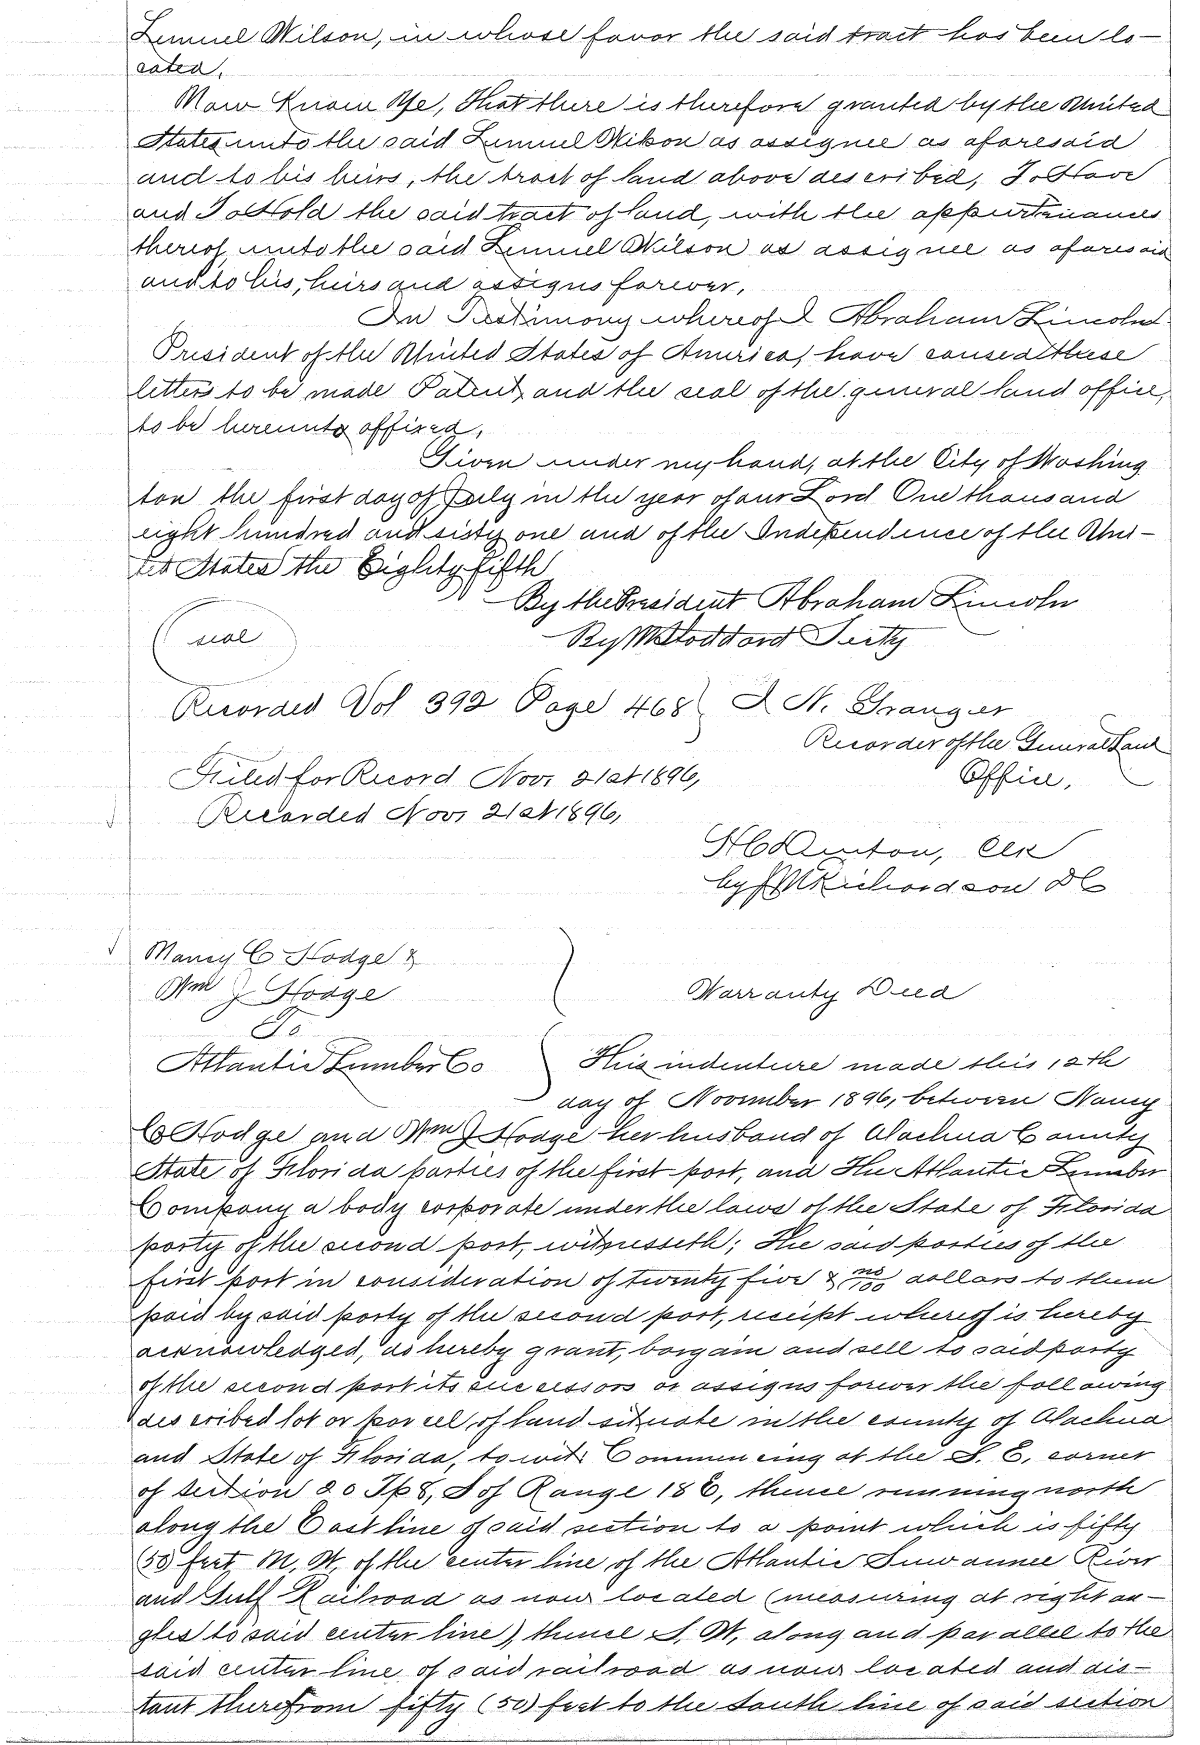 Lemuel Wilson, in whose favor the said tract has been lo-
cated,
Now Know Ye, That there is therefore granted by the United
States unto the said Lemuel Wilson as assignee as aforesaid
and to his heirs, the tract of land above described, To Have
and To Hold the said tract of land, with the appurtenances
thereof, unto the said Lemuel Wilson as assignee as aforesaid
and to his, heirs and assigns forever,
In Testimony whereof I Abraham Lincoln
President of the United States of America, have caused these
letters to be made Patent, and the seal of the general land office,
to be hereunto affixed,
Given under my hand, at the City of Washing
ton the first day of July in the year of our Lord One thousand
eight hundred and sixty one and of the Independence of the Uni-
ted States the Eighty fifth
By the President Abraham Lincoln
seal By W Stoddard Secty
Recorded Vol 392 Page 468 } I. N. Granger
Recorder of the General Land
Filed for Record Nov. 21st 1896, Office,
Recorded Nov. 21st 1896,
H C Denton, Clk
by J M Richardson D C
Nancy C Hodge &
Wm J Hodge Warranty Deed
To
Atlantic Lumber Co This indenture made this 12th
day of November 1896, between Nancy
C Hodge and Wm J Hodge her husband of Alachua County
State of Florida parties of the first part, and The Atlantic Lumber
Company a body corporate under the laws of the State of Florida
party of the second part, witnesseth; The said parties of the
first part in consideration of twenty five & no/100 dollars to them
paid by said party of the second part, receipt whereof is hereby
acknowledged, do hereby grant, bargain and sell to said party
of the second part its successors or assigns forever the following
described lot or parcel of land situate in the county of Alachua
and State of Florida, to wit: Commencing at the S. E. corner
of section 20 Tp 8, S of Range 18 E, thence running north
along the East line of said section to a point which is fifty
(50) feet N. W. of the center line of the Atlantic Suwannee River
and Gulf Railroad as now located (measuring at right an-
gles to said center line), thence S. W. along and parallel to the
said center line of said railroad as now located and dis-
tant therefrom fifty (50) feet to the South line of said section